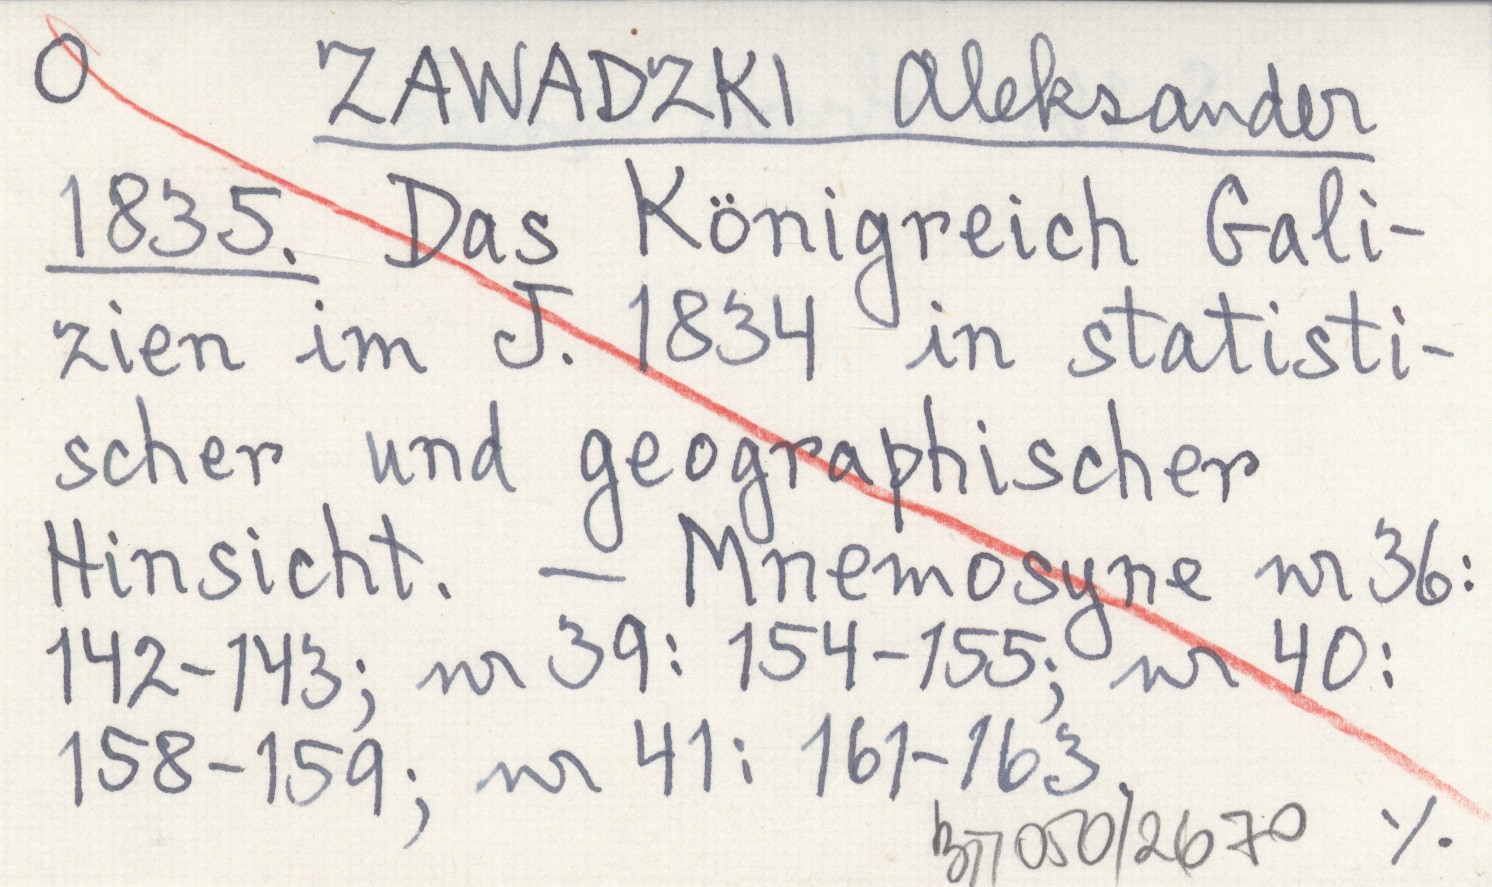 O ZAWADZKI Aleksander
1835. Das Königreich Gali-
zien im J. 1834 in statisti-
scher und geographischer
Hinsicht. — Mnemosyne nr 36:
142-143; nr 39: 154-155; nr 40:
158-159; nr 41: 161-163.
050/2670 ./.